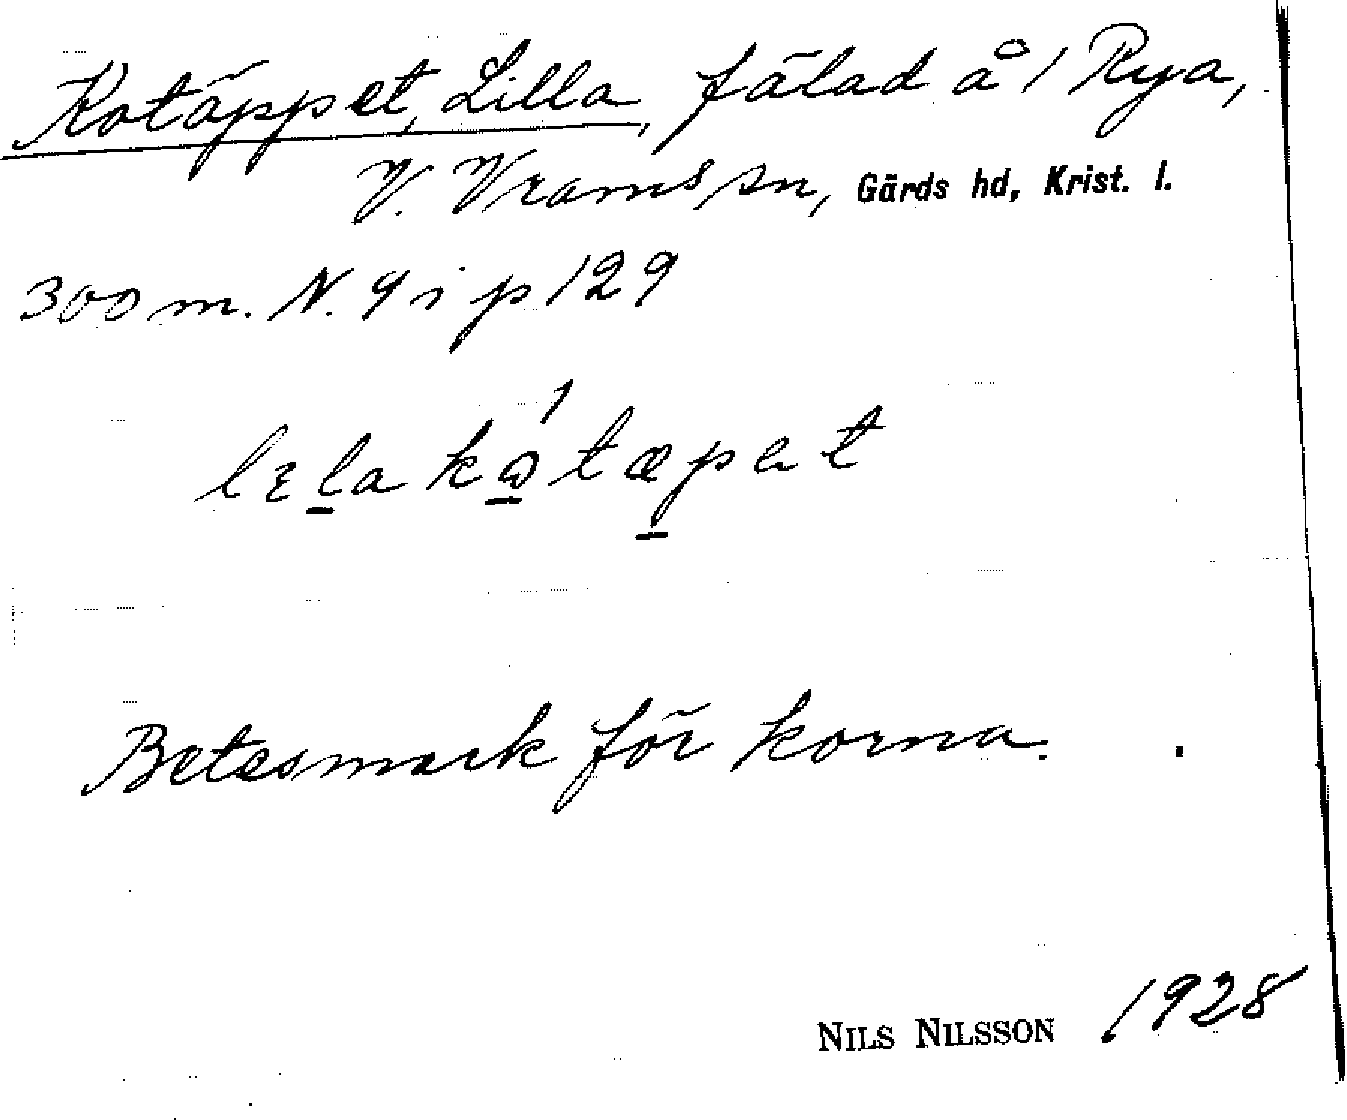 Kotäppet, Lilla, fälad å 1 Rya,
V. Vrams sn, Gärds hd, Krist. l.
300 m. N. 9 i p 129
lɛla kó̱tæpət
Betesmark för korna.
NILS NILSSON 1928